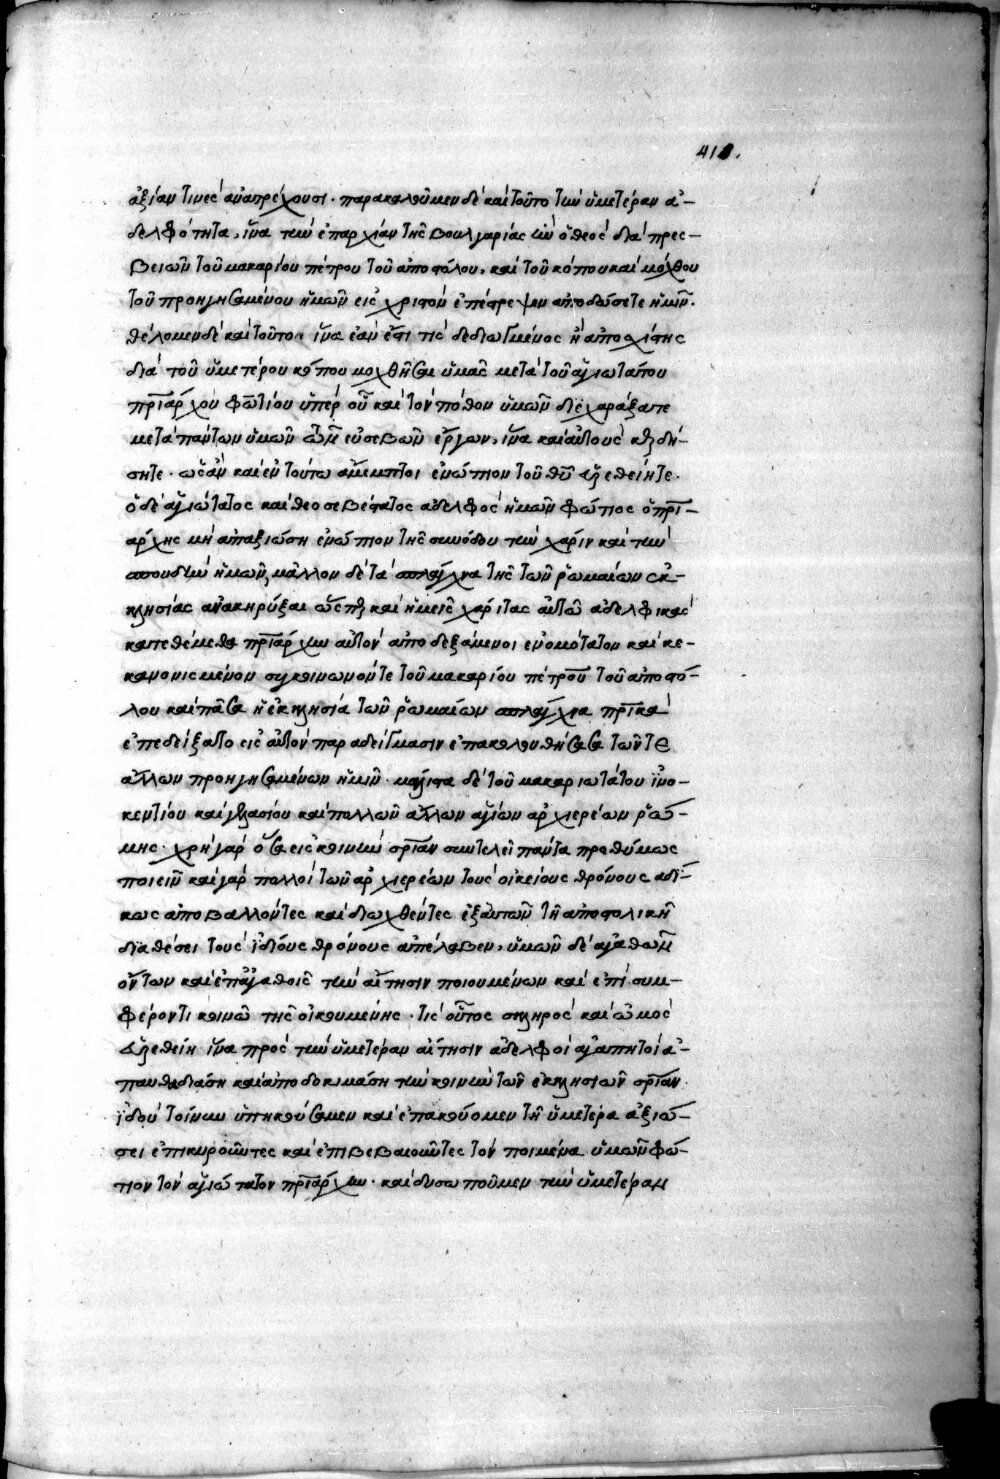 410.
ἀξίαν τινες ἀνατρέχουσι. παρακαλοῦμεν δὲ καὶ τοῦτο τὴν ὑμετέραν ἀ-
δελφότητα, ἵνα τὴν ἐπαρχίαν τῆς βουλγαρίας ἣν ὁ θεὸς διὰ πρεσ-
βειῶν τοῦ μακαρίου πέτρου τοῦ ἀποστόλου, καὶ τοῦ κόπου καὶ μόχθου
τοῦ προηγησαμένου ἡμῶν εἰς χριστὸν ἐπέστρεψεν ἀποδώσετε ἡμῖν.
θέλομεν δὲ καὶ τοῦτο, ἵνα ἐάν ἐστι τὶς δεδιωγμένος ἢ ἀποσχίστης
διὰ τοῦ ὑμετέρου κόπου μοχθῆσαι ὑμᾶς μετὰ τοῦ ἁγιωτάτου
πριάρχου φωτίου ὑπὲρ οὗ καὶ τὸν πόθον ὑμῶν διεχαράξατε
μετὰ πάντων ὑμῶν τῶν εὐσεβῶν ἔργων, ἵνα καὶ αὐτοὺς κερδή-
σητε. ὡς ἂν καὶ ἐν τούτω ἄμεμπτοι ἐνώπιον τοῦ θυ εὑρεθείητε.
ὁ δὲ ἁγιώτατος καὶ θεοσεβέστατος ἀδελφὸς ἡμῶν φώτιος ὁ πρι-
άρχης μὴ ἀπαξιώση ἐνώπιον τῆς συνόδου τὴν χάριν καὶ τὴν
σπουδὴν ἡμῶν, μᾶλλον δὲ τὰ σπλάγχνα τῆς τῶν ῥωμαίων ἐκ-
κλησίας ἀνακηρύξαι ὥσπερ καὶ ἡμεῖς χάριτας αὐτῶ ἀδελφικὰς
κατεθέμεθα πριάρχην αὐτὸν ἀποδεξάμενοι ἐνομότατον καὶ κε-
κανονισμένον συγκοινωνόν τε τοῦ μακαρίου πέτρου τοῦ ἀποστό-
λου καὶ πᾶσα ἡ ἐκκλησία τῶν ῥωμαίων σπλάγχνα πρικὰ
ἐπεδείξατο εἰς αὐτὸν παραδείγμασιν ἐπακολουθήσασα τῶν τε
ἄλλων προηγησαμένων ἡμῖν. μάλιστα δὲ τοῦ μακαριωτάτου ἰνο-
κεντίου καὶ γελασίου καὶ πολλῶν ἄλλων ἁγίων ἀρχιερέων ῥώ-
μης. χρὴ γὰρ ὅσα εἰς κοινὴν σριαν συντελεῖ πάντα προθύμως
ποιεῖν καὶ γὰρ πολλοὶ τῶν ἀρχιερέων τοὺς οἰκείους θρόνους ἀδί-
κως ἀποβαλλόντες καὶ διωχθέντες ἐξ αὐτῶν τῆ ἀποστολικῆ
διαθέσει τοὺς ἰδίους θρόνους ἀπέλαβεν, ὑμῶν δὲ ἀγαθῶν
ὄντων καὶ ἐπ' ἀγαθοῖς τὴν αἴτησιν ποιουμένων καὶ ἐπὶ συμ-
φέροντι κοινῶ τῆς οἰκουμένης. τίς οὕτος σκληρὸς καὶ ὠμὸς
εὑρεθείη ἵνα πρὸς τὴν ὑμετέραν αἴτησιν ἀδελφοὶ ἀγαπητοὶ ἀ-
παυθαδιάση καὶ ἀποδοκιμάση τὴν κοινὴν τῶν ἐκκλησιῶν σριαν.
ἰδοὺ τοίνυν ὑπηκούσαμεν καὶ ἐπακούομεν τῆ ὑμετέρα ἀξιώ-
σει ἐπικυροῦντες καὶ ἐπιβεβαιοῦντες τὸν ποιμένα ὑμῶν φώ-
τιον τὸν ἁγιώτατον πριάρχην. καὶ δυσωποῦμεν τὴν ὑμετέραν